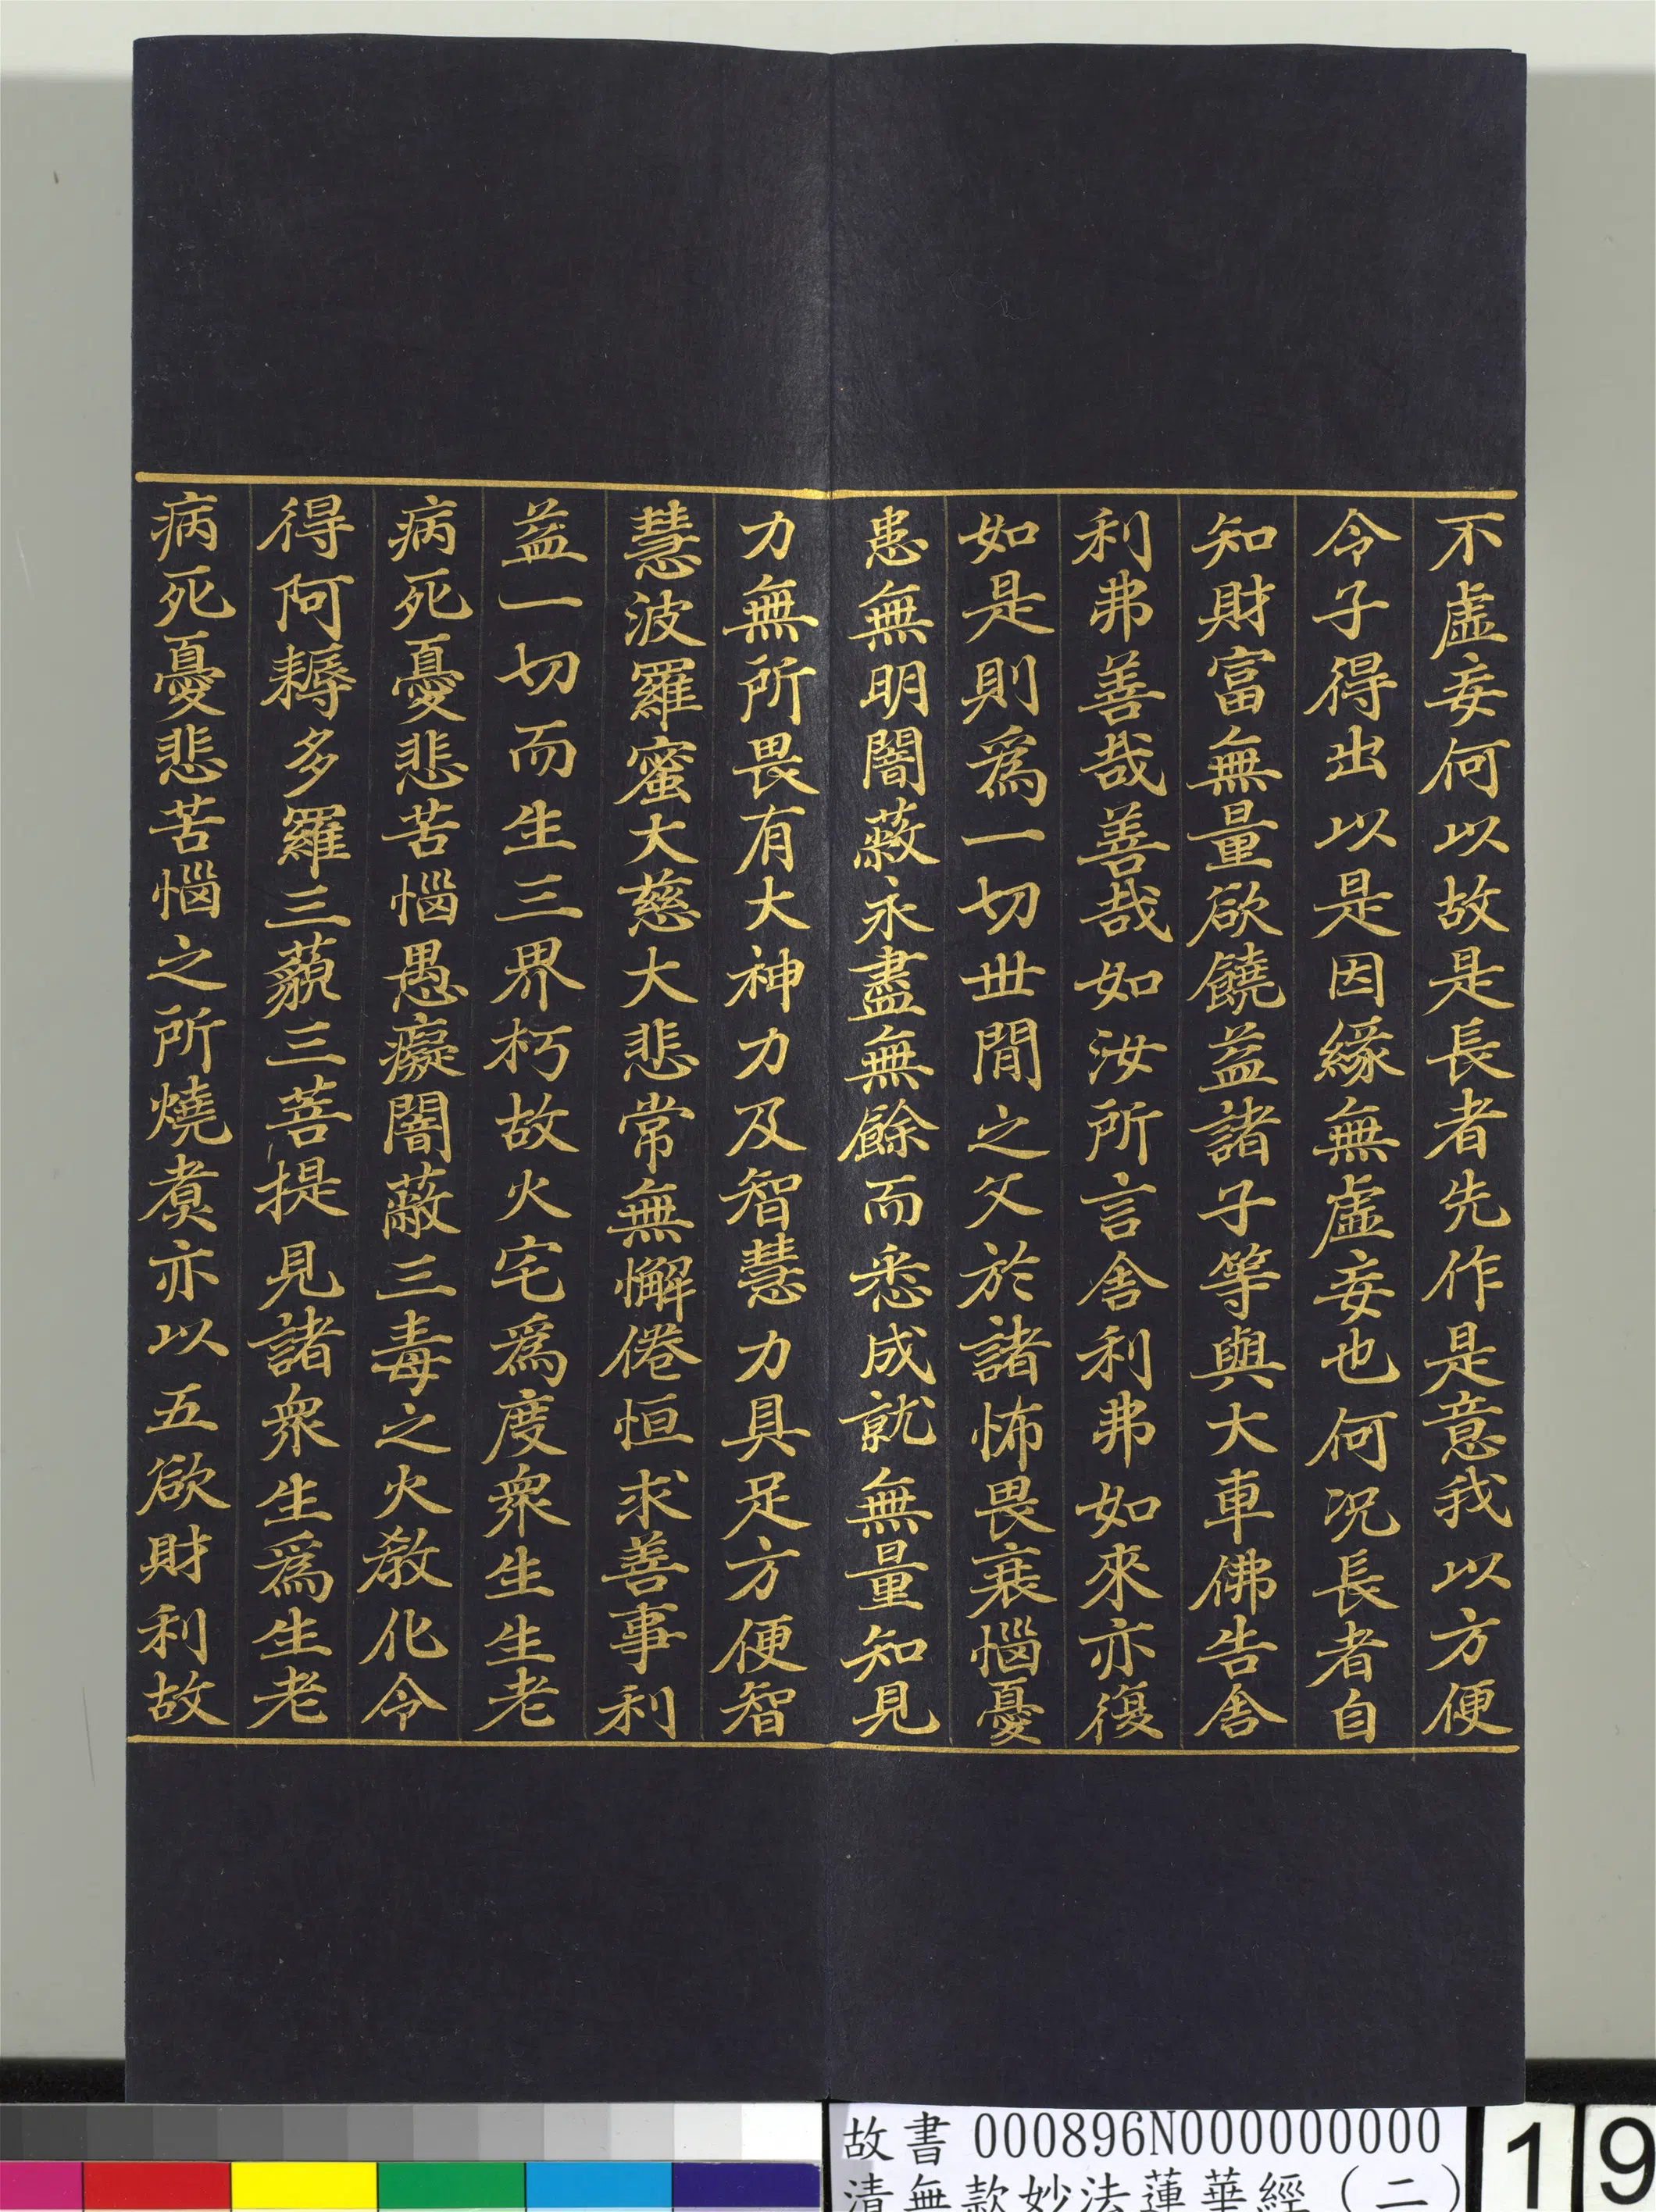 不虛妄何以故是長者先作是意我以方便
令子得出以是因緣無虛妄也何況長者自
知財富無量欲饒益諸子等與大車佛告舍
利弗善哉善哉如汝所言舍利弗如來亦復
如是則為一切世間之父於諸怖畏衰惱憂
患無明闇蔽永盡無餘而悉成就無量知見
力無所畏有大神力及智慧力具足方便智
慧波羅蜜大慈大悲常無懈倦恒求善事利
益一切而生三界朽故火宅為度眾生生老
病死憂悲苦惱愚癡闇蔽三毒之火教化令
得阿耨多羅三藐三菩提見諸眾生為生老
病死憂悲苦惱之所燒煑亦以五欲財利故
故書 000896N000000000
清無款妙法蓮華經(二)
19